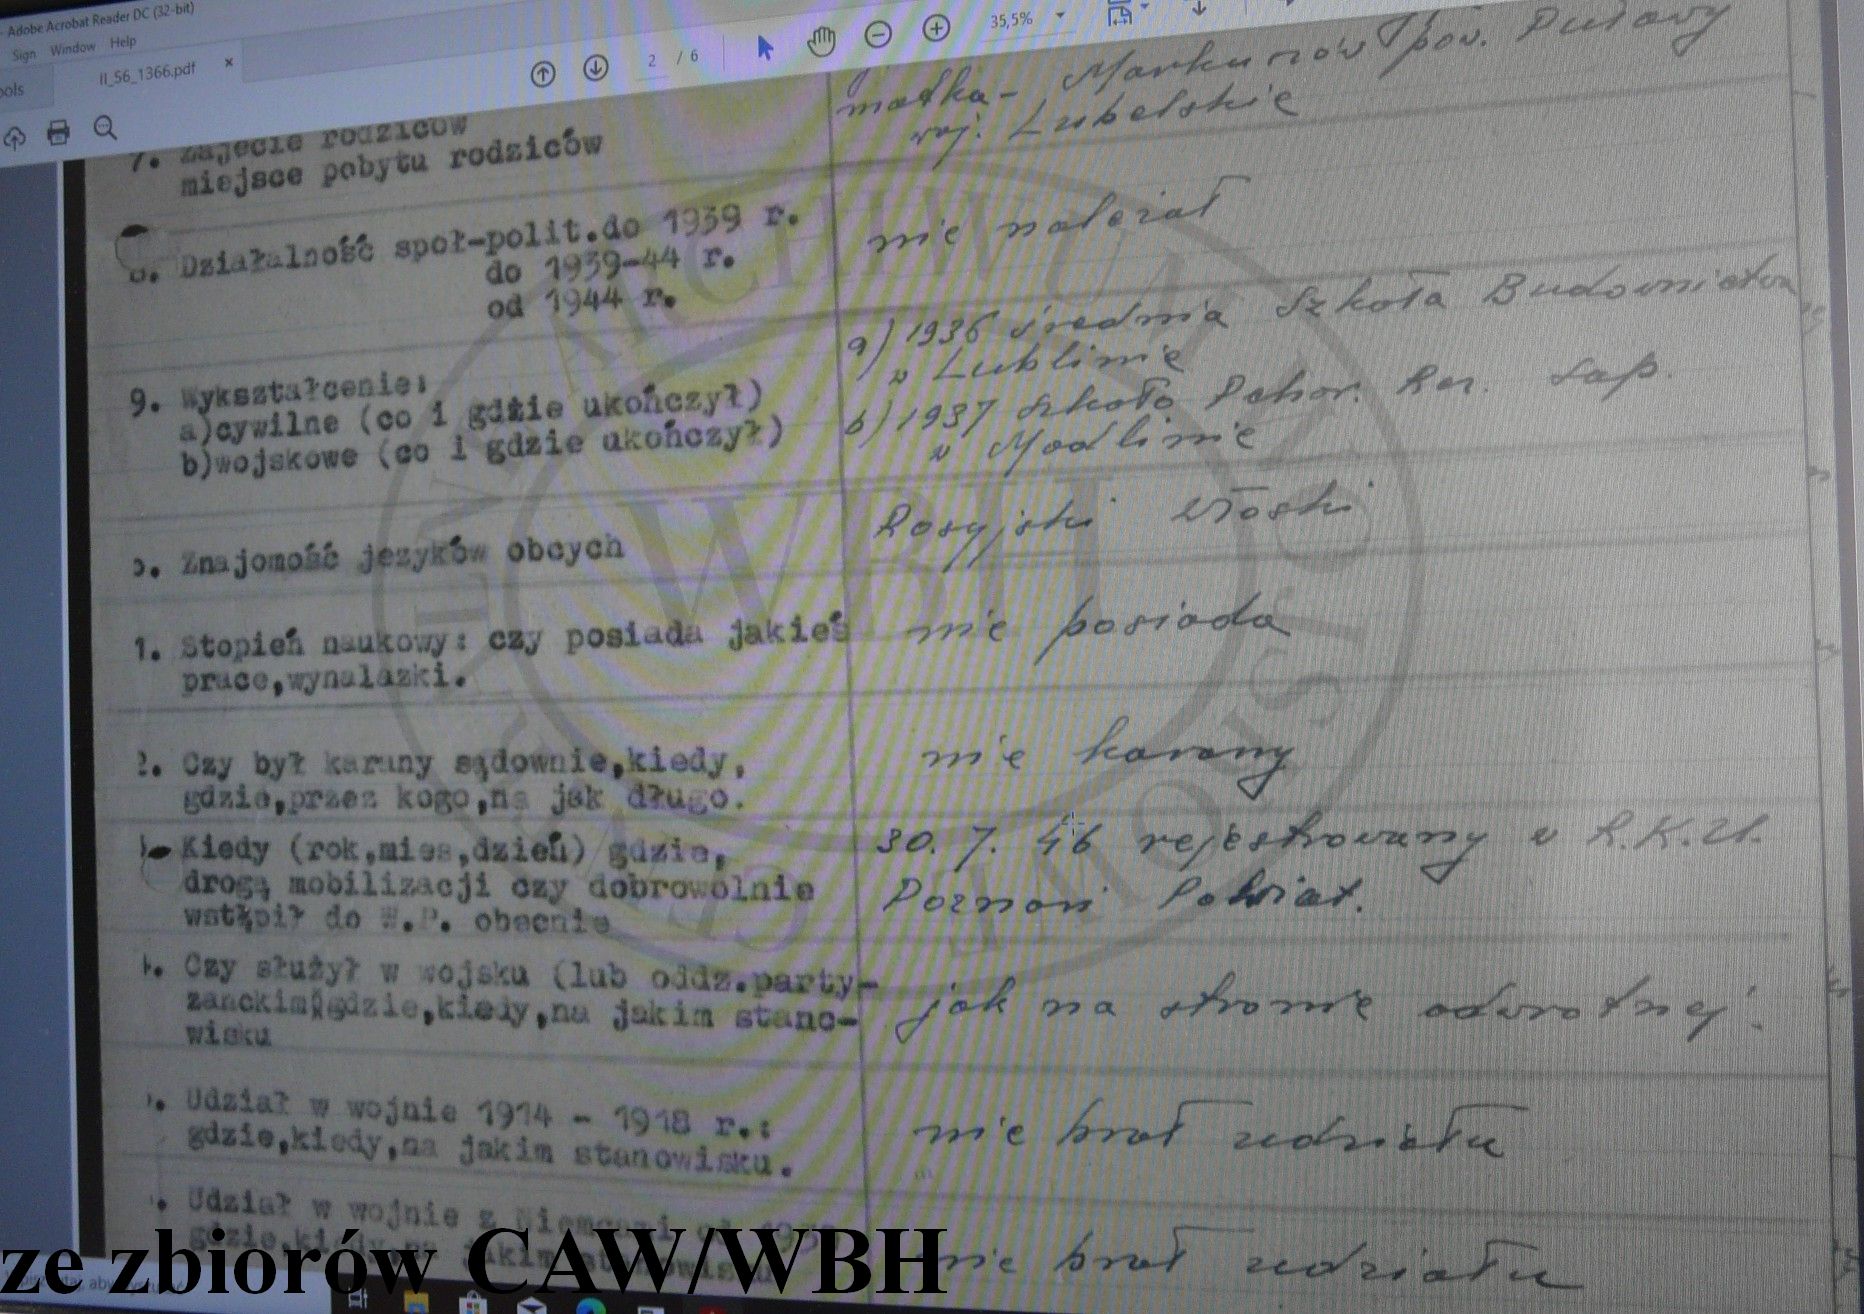 Adobe Acrobat Reader DC (32-bit)
Sign Window Help
ools
II_56_1366.pdf ×
2 / 6
35,5%
matka - Markuszów pow. Puławy
woj. Lubelskie
7. Zajęcie rodziców
miejsce pobytu rodziców
8. Działalność społ-polit.do 1939 r.
do 1939-44 r.
od 1944 r.
nie należał
9. Wykształcenie:
a)cywilne (co i gdzie ukończył)
b)wojskowe (co i gdzie ukończył)
a) 1936 średnia Szkoła Budownictwa
w Lublinie
b) 1937 szkoła Pchor. Rez. Sap.
w Modlinie
0. Znajomość jezyków obcych
Rosyjski Włoski
1. Stopień naukowy: czy posiada jakieś
prace,wynalazki.
nie posiada
2. Czy był karany sądownie,kiedy,
gdzie,przez kogo,na jak długo.
nie karany
Kiedy (rok,mies,dzień) gdzie,
drogą mobilizacji czy dobrowolnie
wstąpił do W.P. obecnie
30. 7. 46 rejestrowany w R.K.U.
Poznań Powiat.
4. Czy służył w wojsku (lub oddz.party-
zanckim)gdzie,kiedy,na jakim stano-
wisku
jak na stronie odwrotnej.
Udział w wojnie 1914 - 1918 r.:
gdzie,kiedy,na jakim stanowisku.
nie brał udziału
Udział w wojnie z Niemcami od 1939
gdzie,kiedy,na jakim stanowisku
nie brał udziału
ARCHIWUM
WBH
ze zbiorów CAW/WBH